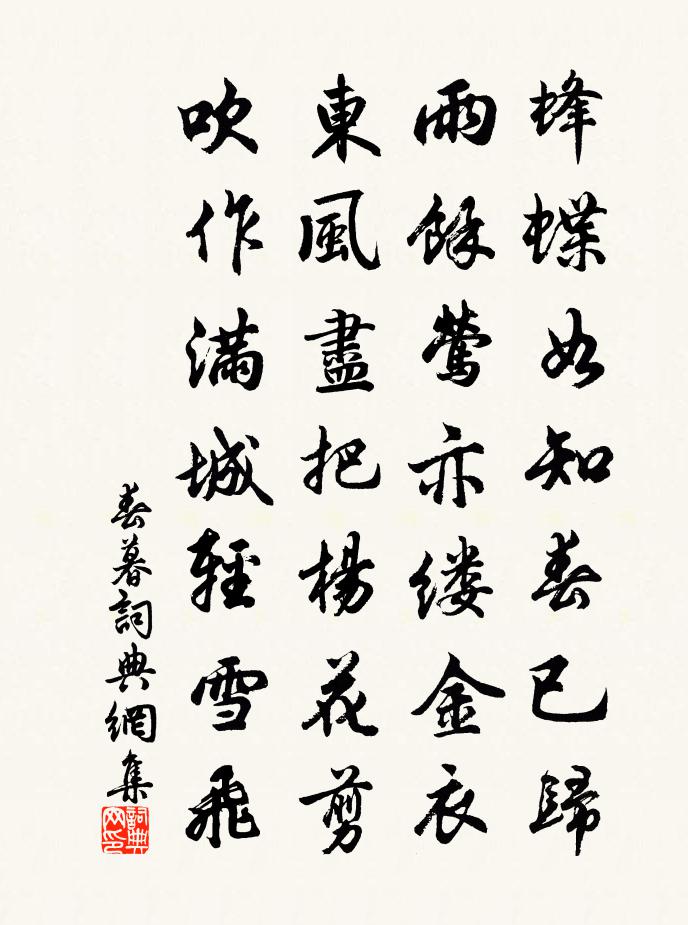 蜂蝶如知春已歸
雨餘鶯亦缕金衣
東風盡把楊花剪
吹作滿城輕雪飛
春暮詞典網集
詞典网印